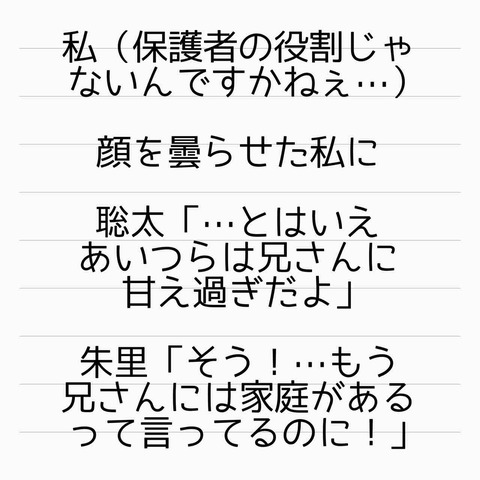 私（保護者の役割じゃ
ないんですかねぇ…）
顔を曇らせた私に
聡太「…とはいえ
あいつらは兄さんに
甘え過ぎだよ」
朱里「そう！…もう
兄さんには家庭がある
って言ってるのに！」